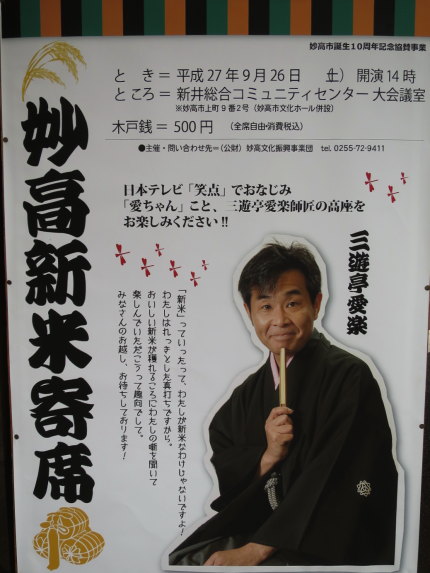 妙高市誕生10周年記念協賛事業
と き＝平成27年9月26日 (土) 開演14時
ところ＝新井総合コミュニティセンター 大会議室
※妙高市上町9番2号（妙高市文化ホール併設）
木戸銭＝500円 （全席自由・消費税込）
●主催・問い合わせ先＝(公財) 妙高文化振興事業団 tel. 0255-72-9411
妙高新米寄席
日本テレビ「笑点」でおなじみ
「愛ちゃん」こと、三遊亭愛楽師匠の高座を
お楽しみください!!
三遊亭愛楽
「新米」っていったって、わたしが新米なわけじゃないですよ！
わたしはれっきとした真打ちですから。
おいしい新米が穫れるころにわたしの噺を聞いて
楽しんでいただこうって趣向でして。
みなさんのお越し、お待ちしております！